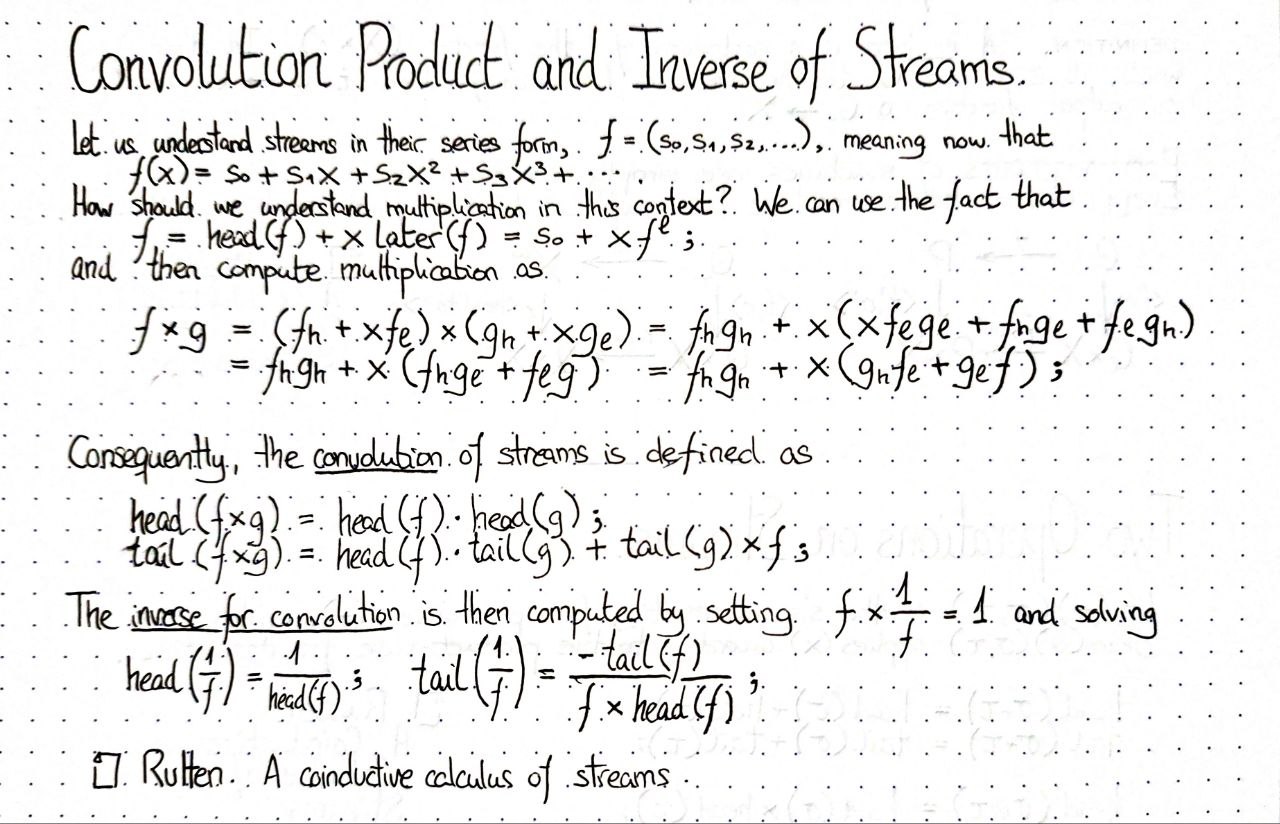 Convolution Product and Inverse of Streams.
Let us understand streams in their series form, f = (s₀, s₁, s₂, ....), meaning now that
f(x) = s₀ + s₁x + s₂x² + s₃x³ + ... .
How should we understand multiplication in this context? We can use the fact that
f = head(f) + x later(f) = s₀ + x fᵉ ;
and then compute multiplication as
f × g = (fₕ + x fₑ) × (gₕ + x gₑ) = fₕgₕ + x (x fₑgₑ + fₕgₑ + fₑgₕ)
= fₕgₕ + x (fₕgₑ + fₑg) = fₕgₕ + x (gₕfₑ + gₑf) ;
Consequently, the convolution of streams is defined as
head (f×g) = head(f) · head(g) ;
tail (f×g) = head(f) · tail(g) + tail(g) × f ;
The inverse for convolution is then computed by setting f × 1/f = 1 and solving
head(1/f) = 1/head(f) ; tail(1/f) = -tail(f)/(f × head(f)) ;
□ Rutten. A coinductive calculus of streams.